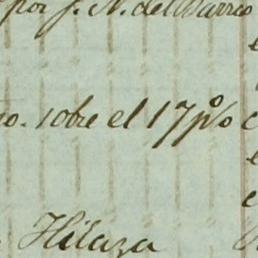 por J. N. del Barrio
o. sobre el 17 p%
Hilaza